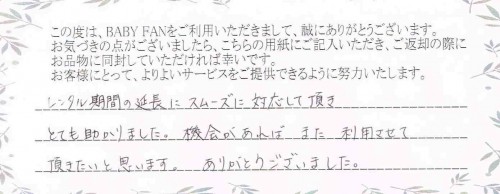 この度は、BABY FANをご利用いただきまして、誠にありがとうございます。
お気づきの点がございましたら、こちらの用紙にご記入いただき、ご返却の際に
お品物に同封していただければ幸いです。
お客様にとって、よりよいサービスをご提供できるように努力いたします。
レンタル期間の延長に スムーズに 対応して頂き
とても助かりました。 機会があれば また 利用させて
頂きたいと思います。 ありがとうございました。